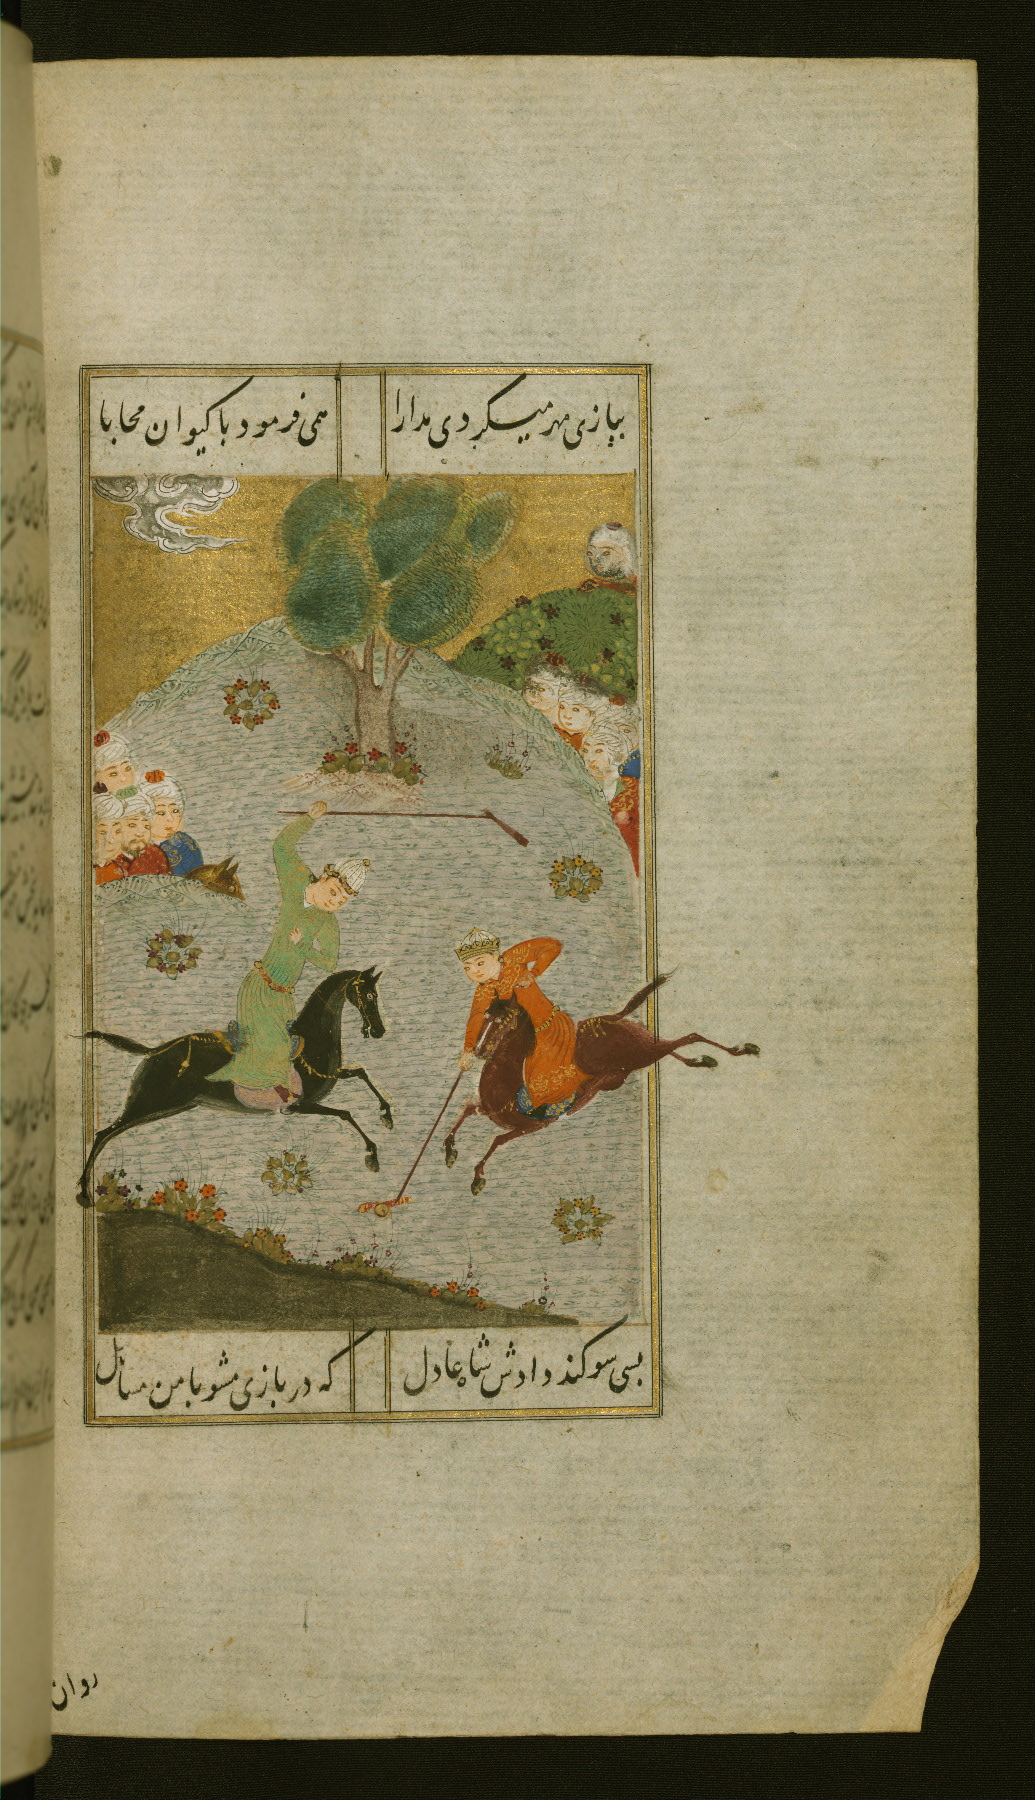 ببازی مهر میکردی مدارا
همی فرمود با کیوان محابا
بسی سوکند دادش شاه عادل
که در بازی مشو با من مساهل
روان